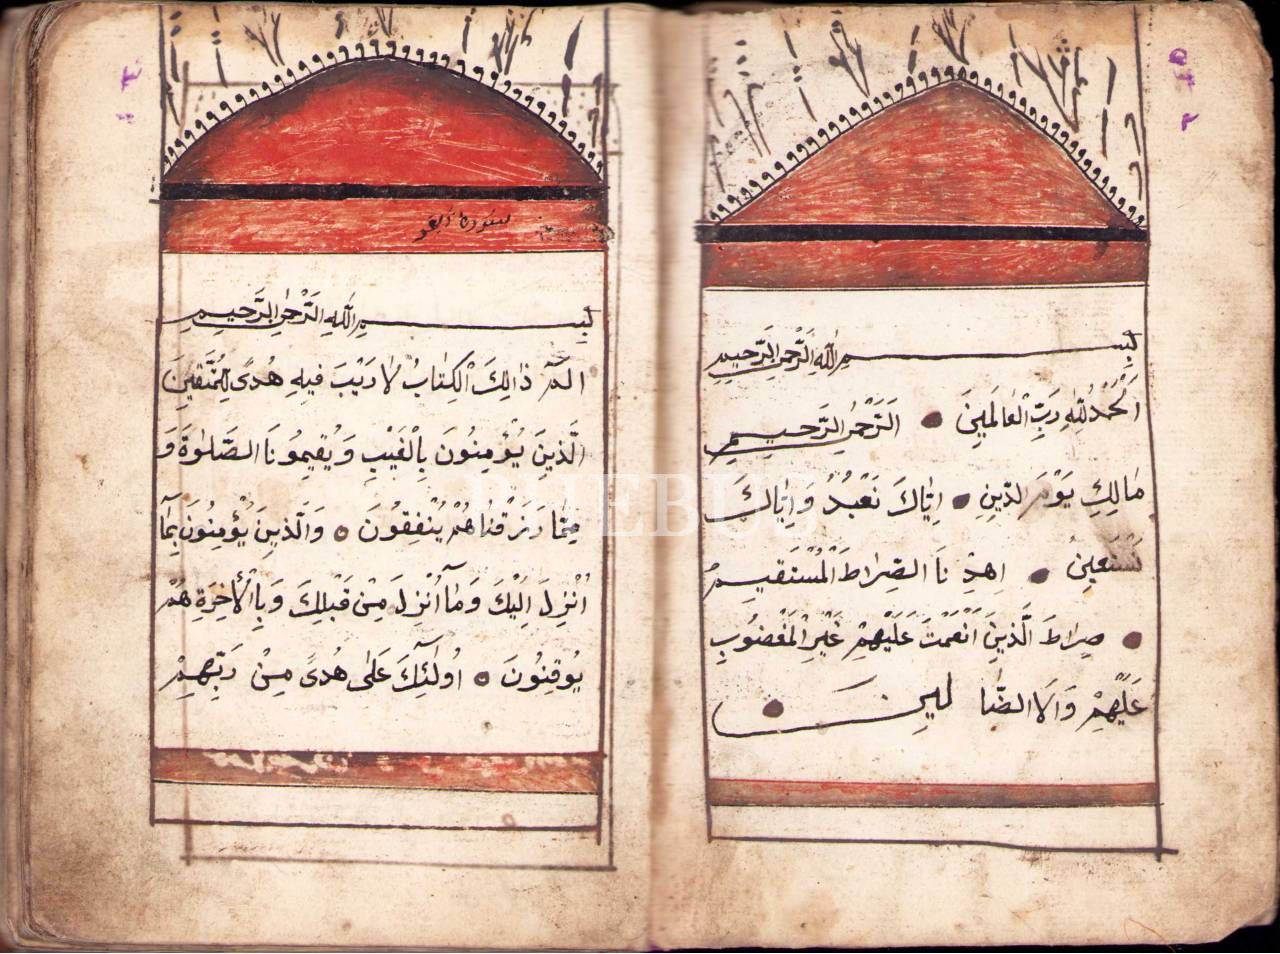 بِسْمِ اللّٰهِ الرَّحْمٰنِ الرَّحِيمِ
اَلْحَمْدُ لِلّٰهِ رَبِّ الْعَالَمِينَ ● اَلرَّحْمٰنِ الرَّحِيمِ
مَالِكِ يَوْمِ الدِّينِ ● اِيَّاكَ نَعْبُدُ وَاِيَّاكَ
نَسْتَعِينُ ● اِهْدِنَا الصِّرَاطَ الْمُسْتَقِيمَ
● صِرَاطَ الَّذِينَ اَنْعَمْتَ عَلَيْهِمْ غَيْرِ الْمَغْضُوبِ
عَلَيْهِمْ وَلَا الضَّالِّينَ ●
سورة البقر
بِسْمِ اللّٰهِ الرَّحْمٰنِ الرَّحِيمِ
الٓمٓ ذَالِكَ الْكِتَابُ لَا رَيْبَ فِيهِ هُدًى لِلْمُتَّقِينَ
الَّذِينَ يُؤْمِنُونَ بِالْغَيْبِ وَيُقِيمُونَ الصَّلٰوةَ وَ
مِمَّا رَزَقْنَاهُمْ يُنْفِقُونَ ● وَالَّذِينَ يُؤْمِنُونَ بِمَآ
اُنْزِلَ اِلَيْكَ وَمَآ اُنْزِلَ مِنْ قَبْلِكَ وَبِالْاٰخِرَةِ هُمْ
يُوقِنُونَ ● اُولٰٓئِكَ عَلٰى هُدًى مِنْ رَبِّهِمْ
PHEBUS